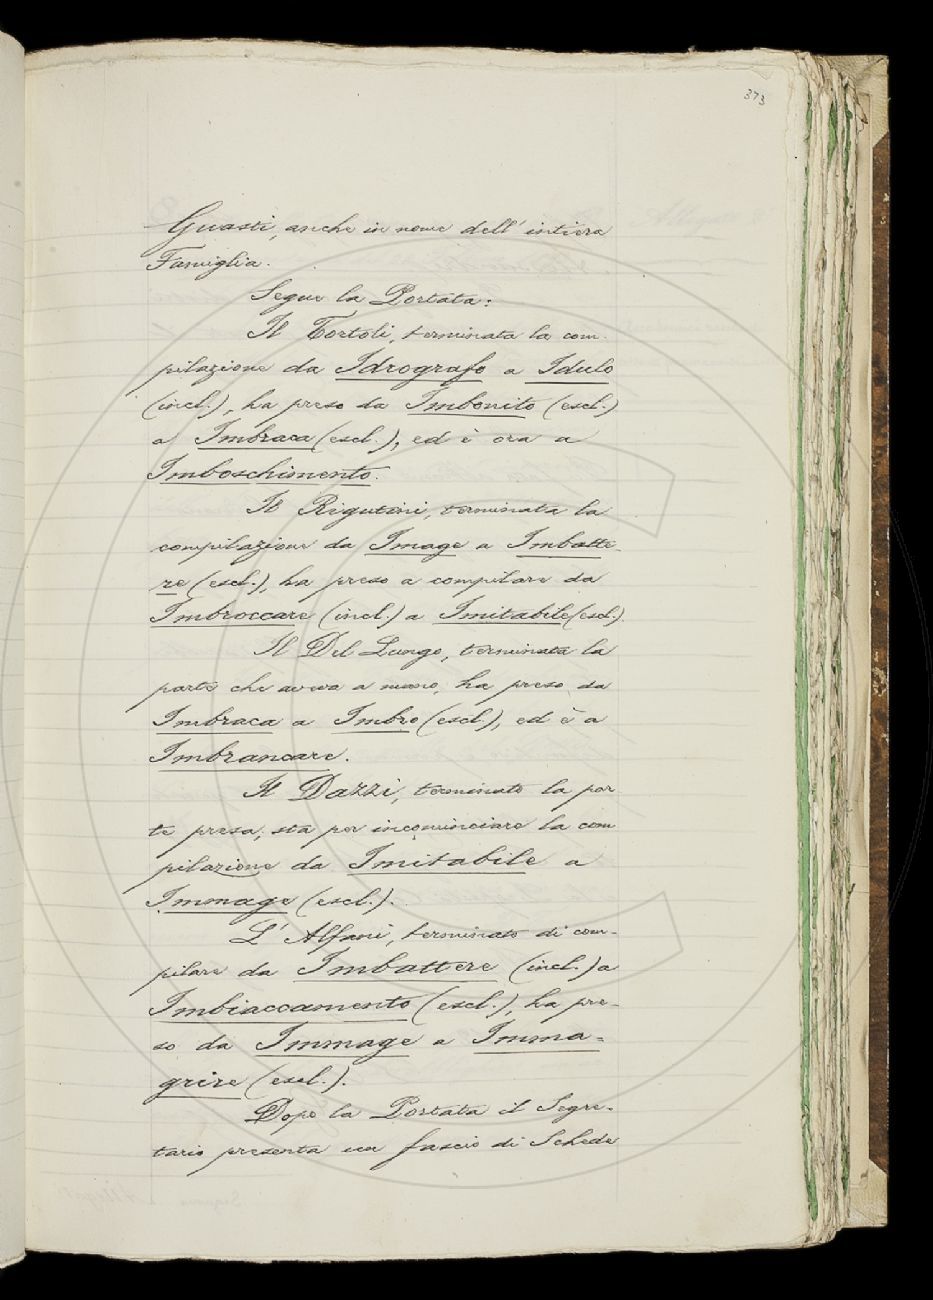 373
Guasti, anche in nome dell' intiera
Famiglia.
Segue la Portata:
Il Tortoli, terminata la com-
pilazione da Idrografo a Idulo
(incl.), ha preso da Imbonito (escl.)
a Imbraca (escl.), ed è ora a
Imboschimento.
Il Rigutini, terminata la
compilazione da Image a Imbatte-
re (escl.), ha preso a compilare da
Imbroccare (incl.) a Imitabile (escl.).
Il Del Lungo, terminata la
parte che aveva a mano, ha preso da
Imbraca a Imbro (escl.), ed è a
Imbrancare.
Il Dazzi, terminato la par
te presa, sta per incominciare la com
pilazione da Imitabile a
Immage (escl.).
L' Alfani, terminato di com-
pilare da Imbattere (incl.) a
Imbiaccamento (escl.), ha pre-
so da Immage a Imma-
grire (escl.).
Dopo la Portata il Segre-
tario presenta un fascio di Schede